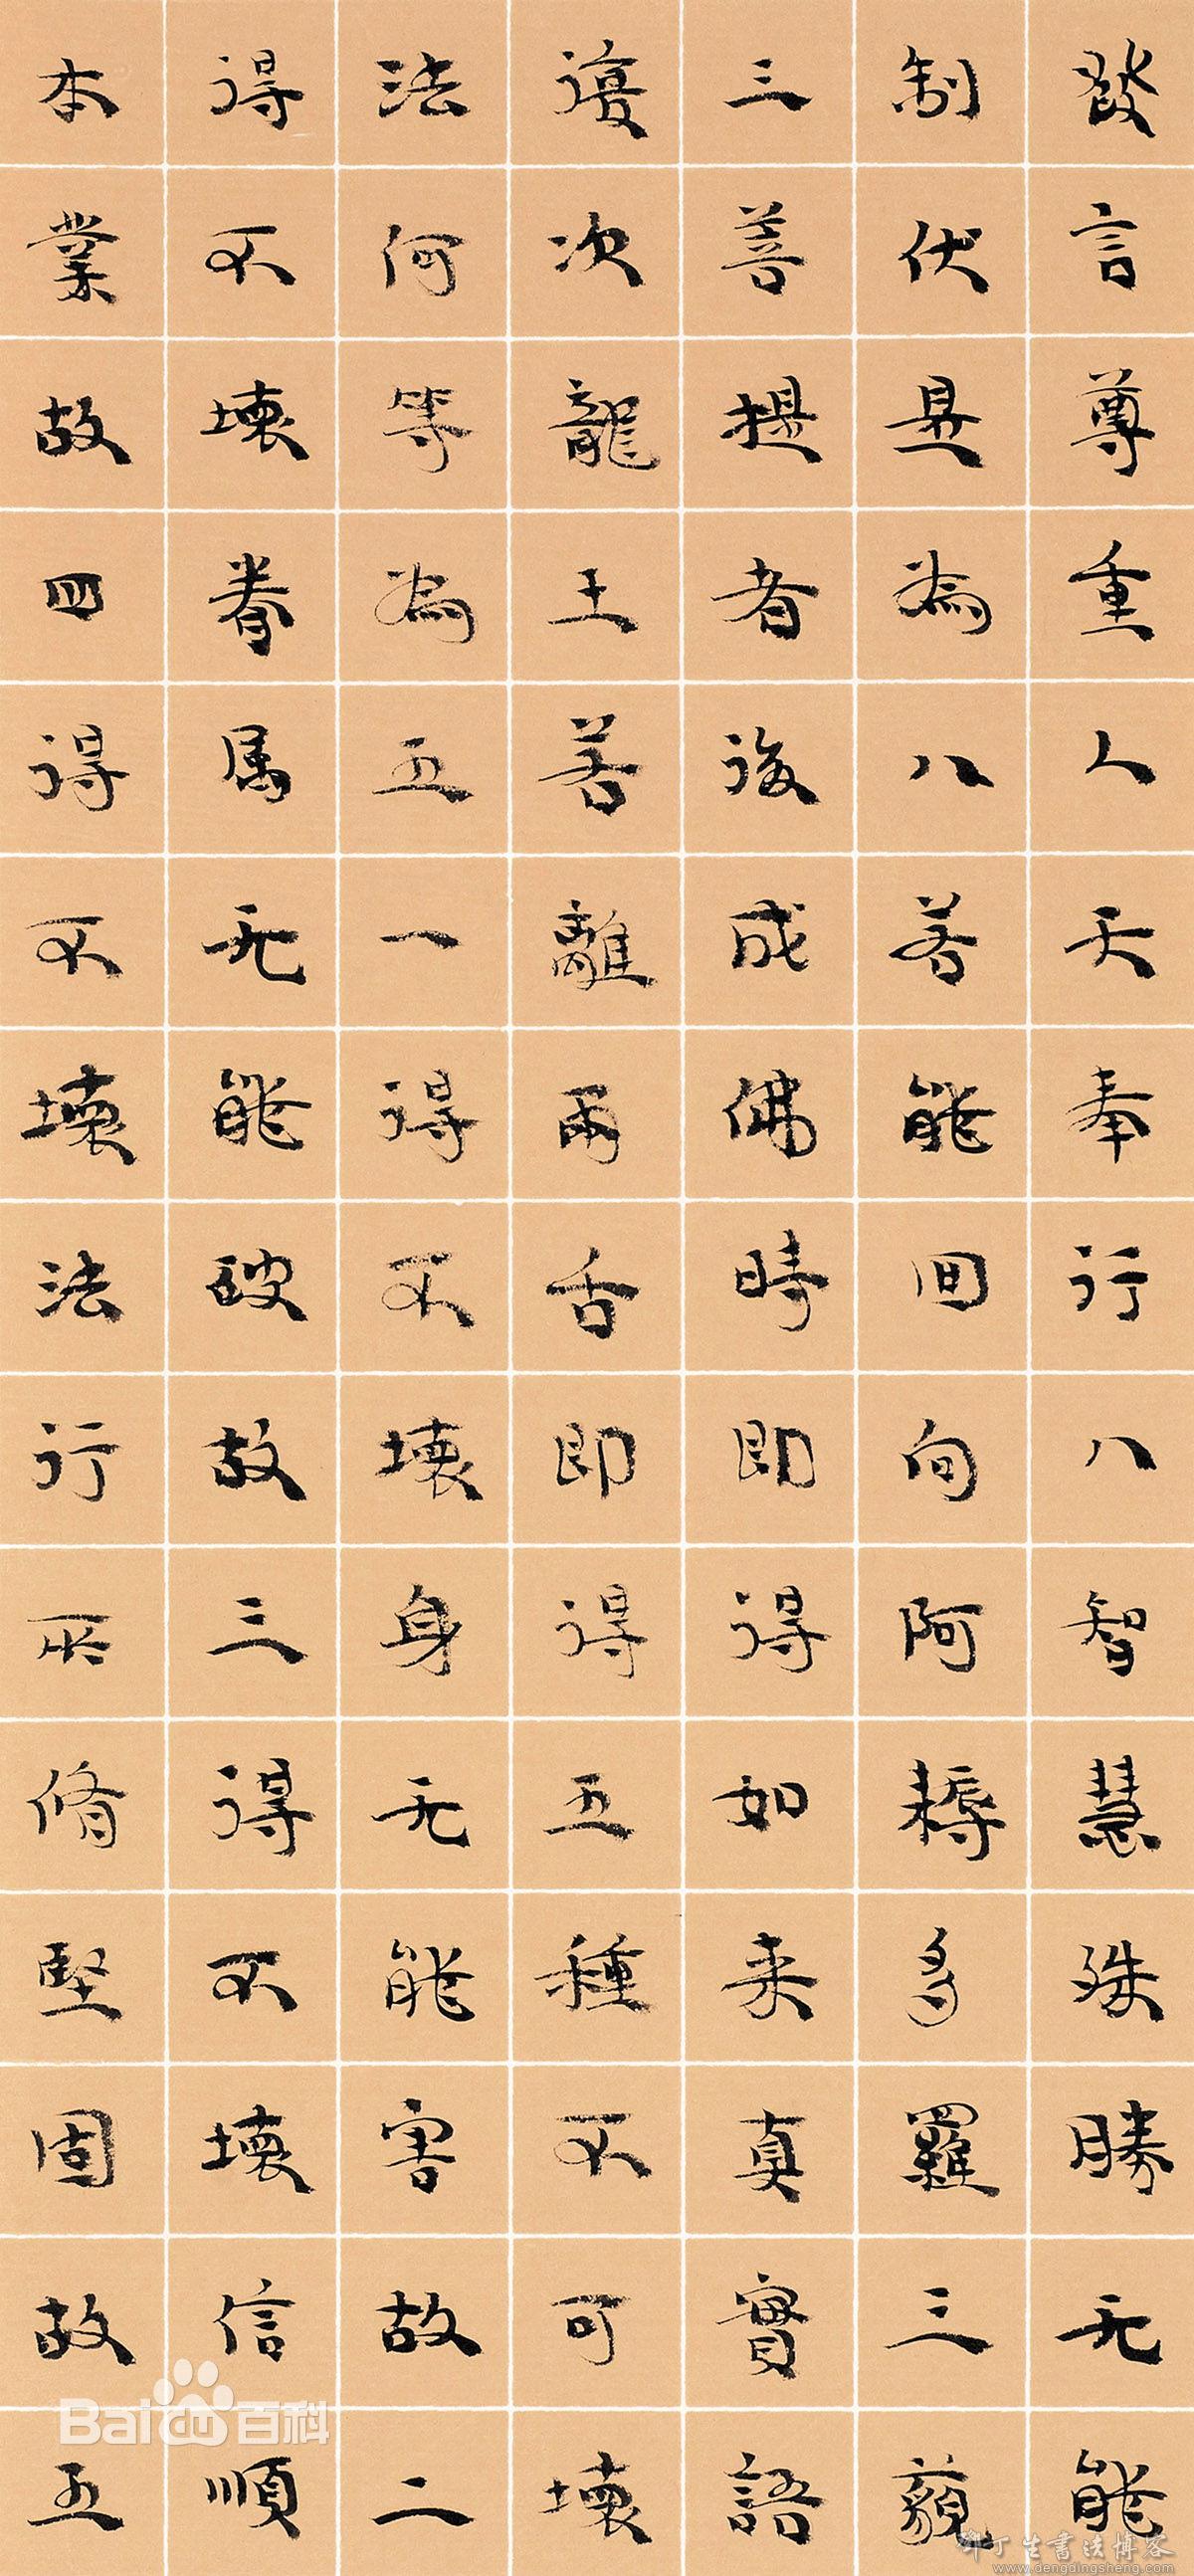 發言尊重人天奉行八智慧殊勝无能
制伏是為八若能回向阿耨多羅三藐
三菩提者後成佛時即得如来真實語
復次龍王若離兩舌即得五種不可壞
法何等為五一得不壞身无能害故二
得不壞眷属无能破故三得不壞信順
本業故四得不壞法行所修堅固故五
Baidu百科
邓丁生書法博客
www.dengdingsheng.com